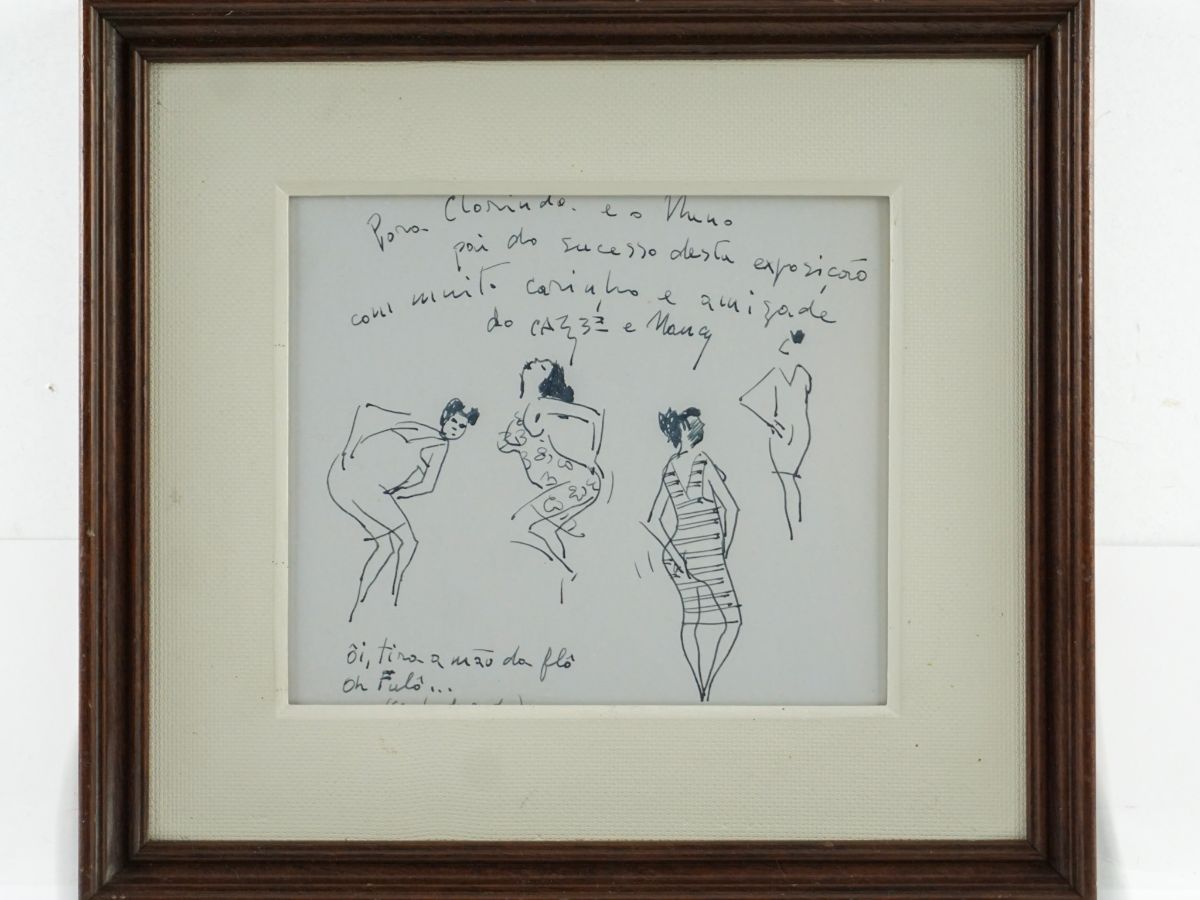 Para Clorinda e o
pai do sucesso desta exposição
com muito carinho e amizade
do e
ôi, tira a mão da flô
Oh Fulô...